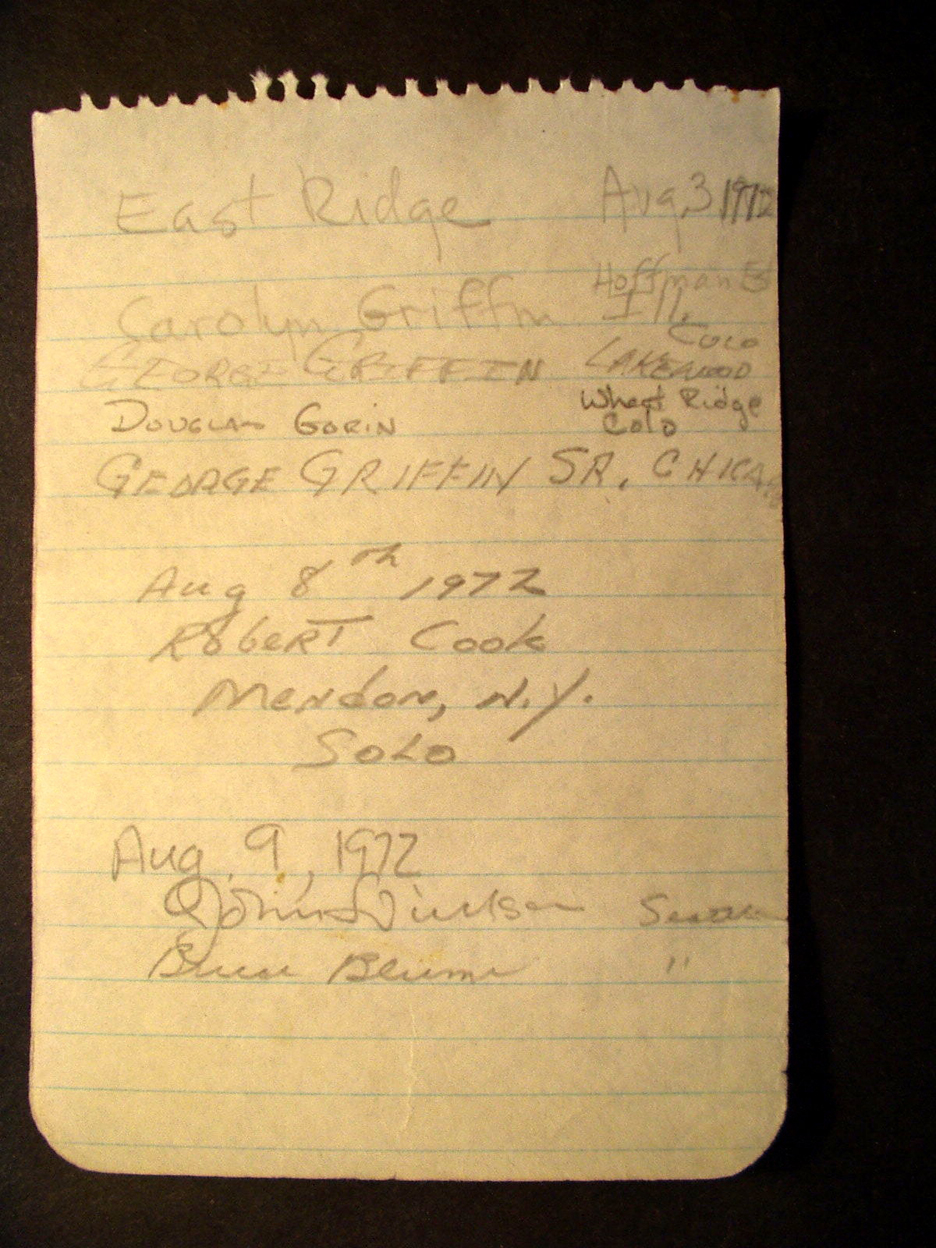 East Ridge Aug 3 1972
Hoffman Es
Carolyn Griffin Ill.
Colo
GEORGE GRIFFIN LAKEWOOD
DOUGLAS GORIN Wheat Ridge
Colo
GEORGE GRIFFIN SR. CHICA
Aug 8th 1972
Robert Cook
Mendon, N.Y.
SoLo
Aug. 9, 1972
John Seattle
Bruce Blume "